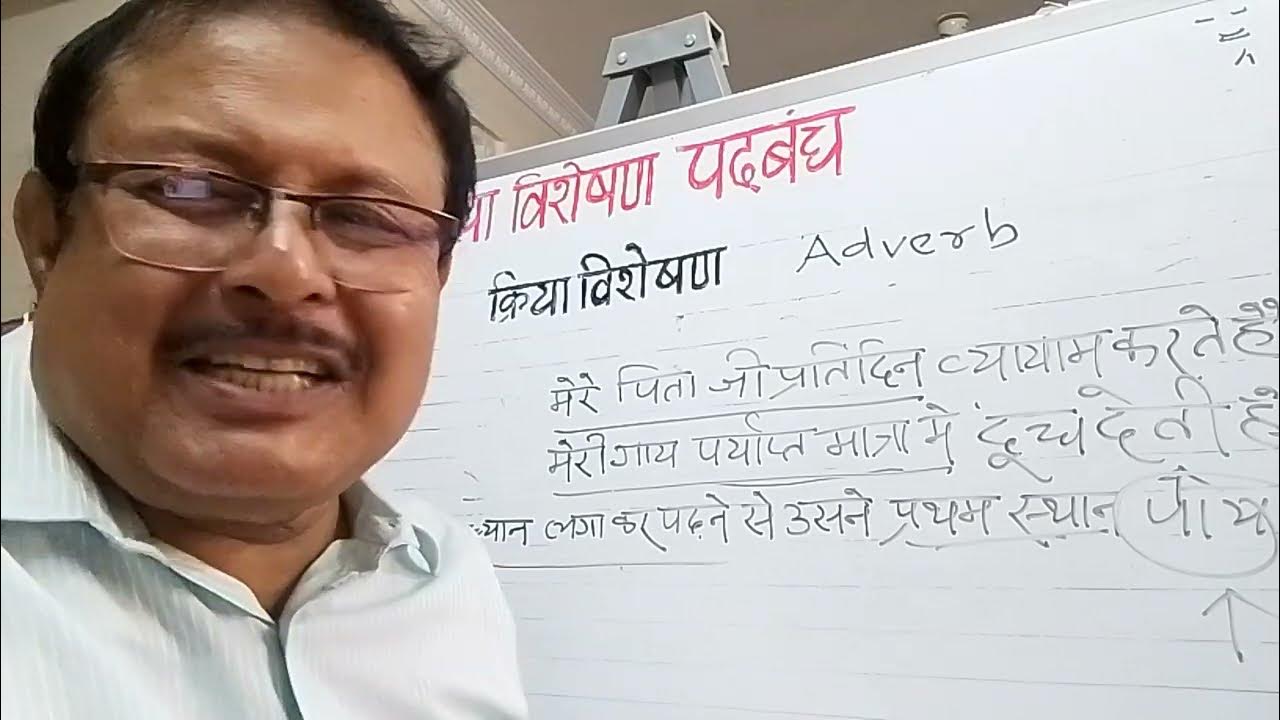 या विशेषण पदबंध
क्रिया विशेषण Adverb
मेरे पिता जी प्रतिदिन व्यायाम करते हैं
मेरी गाय पर्याप्त मात्रा में दूध देती है
ध्यान लगा कर पढ़ने से उसने प्रथम स्थान